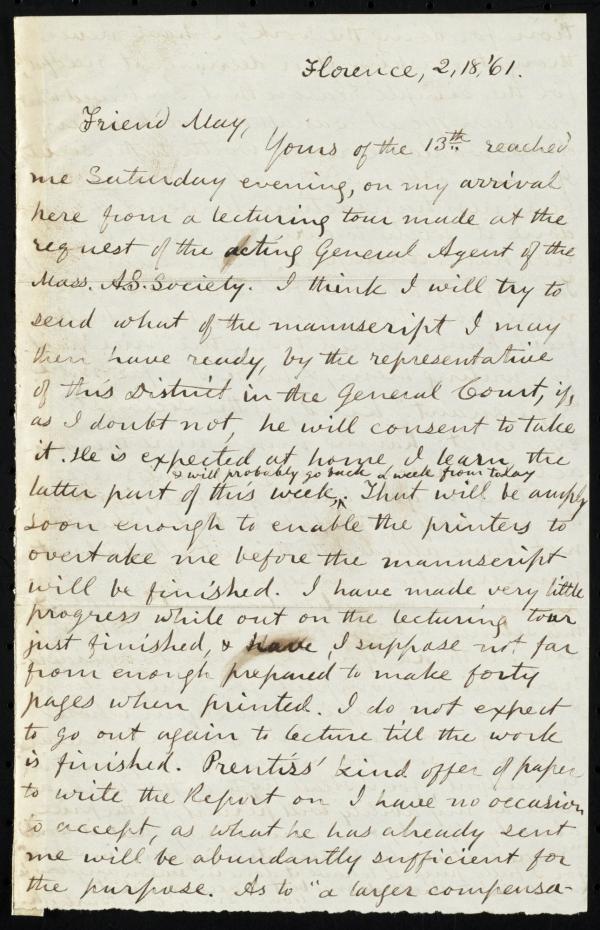 Florence, 2, 18, '61.
Friend May,
Yours of the 13th. reached
me Saturday evening, on my arrival
here from a lecturing tour made at the
request of the acting General Agent of the
Mass. A.S. Society. I think I will try to
send what of the manuscript I may
then have ready, by the representative
of this District in the General Court, if,
as I doubt not, he will consent to take
it. He is expected at home, I learn, the
& will probably go back a week from today
latter part of this week,^ That will be amply
soon enough to enable the printers to
overtake me before the manuscript
will be finished. I have made very little
progress while out on the lecturing tour
just finished, & have I suppose not far
from enough prepared to make forty
pages when printed. I do not expect
to go out again to lecture till the work
is finished. Prentiss' kind offer of paper
to write the Report on I have no occasion
to accept, as what he has already sent
me will be abundantly sufficient for
the purpose. As to "a larger compensa-